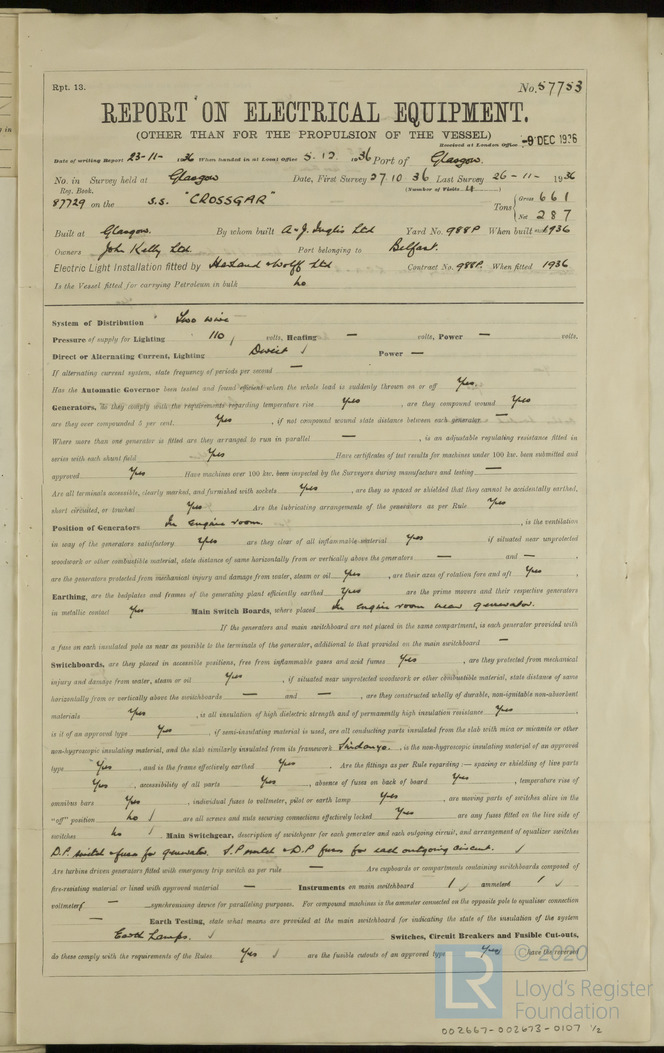 Rpt. 13.
No. 57753
REPORT ON ELECTRICAL EQUIPMENT.
(OTHER THAN FOR THE PROPULSION OF THE VESSEL)
Received at London Office -9 DEC 1936
Date of writing Report 23-11- 1936 When handed in at Local Office 5.12. 1936 Port of Glasgow.
No. in Survey held at Glasgow Date, First Survey 27.10 36 Last Survey 26-11- 1936
Reg. Book. (Number of Visits 4)
87729 on the S.S. "CROSSGAR" Tons { Gross 661
Net 287
Built at Glasgow. By whom built A & J. Inglis Ltd Yard No. 988P When built 1936
Owners John Kelly Ltd. Port belonging to Belfast.
Electric Light Installation fitted by Harland & Wolff Ltd Contract No. 988P. When fitted 1936
Is the Vessel fitted for carrying Petroleum in bulk no
System of Distribution Two wire
Pressure of supply for Lighting 110 volts, Heating — volts, Power — volts.
Direct or Alternating Current, Lighting Direct Power —
If alternating current system, state frequency of periods per second —
Has the Automatic Governor been tested and found efficient when the whole load is suddenly thrown on or off Yes
Generators, do they comply with the requirements regarding temperature rise Yes, are they compound wound Yes
are they over compounded 5 per cent. Yes, if not compound wound state distance between each generator —
Where more than one generator is fitted are they arranged to run in parallel —, is an adjustable regulating resistance fitted in
series with each shunt field Yes Have certificates of test results for machines under 100 kw. been submitted and
approved Yes Have machines over 100 kw. been inspected by the Surveyors during manufacture and testing —
Are all terminals accessible, clearly marked, and furnished with sockets Yes, are they so spaced or shielded that they cannot be accidentally earthed,
short circuited, or touched Yes Are the lubricating arrangements of the generators as per Rule Yes
Position of Generators In Engine room., is the ventilation
in way of the generators satisfactory Yes are they clear of all inflammable material Yes if situated near unprotected
woodwork or other combustible material, state distance of same horizontally from or vertically above the generators — and —,
are the generators protected from mechanical injury and damage from water, steam or oil Yes, are their axes of rotation fore and aft Yes,
Earthing, are the bedplates and frames of the generating plant efficiently earthed Yes are the prime movers and their respective generators
in metallic contact Yes Main Switch Boards, where placed In Engine room near generator.
If the generators and main switchboard are not placed in the same compartment, is each generator provided with
a fuse on each insulated pole as near as possible to the terminals of the generator, additional to that provided on the main switchboard —
Switchboards, are they placed in accessible positions, free from inflammable gases and acid fumes Yes, are they protected from mechanical
injury and damage from water, steam or oil Yes, if situated near unprotected woodwork or other combustible material, state distance of same
horizontally from or vertically above the switchboards — and —, are they constructed wholly of durable, non-ignitable non-absorbent
materials Yes, is all insulation of high dielectric strength and of permanently high insulation resistance Yes,
is it of an approved type Yes, if semi-insulating material is used, are all conducting parts insulated from the slab with mica or micanite or other
non-hygroscopic insulating material, and the slab similarly insulated from its framework Sindanyo., is the non-hygroscopic insulating material of an approved
type Yes, and is the frame effectively earthed Yes Are the fittings as per Rule regarding :— spacing or shielding of live parts
Yes, accessibility of all parts Yes, absence of fuses on back of board Yes, temperature rise of
omnibus bars Yes, individual fuses to voltmeter, pilot or earth lamp Yes, are moving parts of switches alive in the
"off" position no are all screws and nuts securing connections effectively locked Yes are any fuses fitted on the live side of
switches no Main Switchgear, description of switchgear for each generator and each outgoing circuit, and arrangement of equalizer switches
D.P. switch & fuses for generator. S.P. switch & D.P. fuses for each outgoing circuit.
Are turbine driven generators fitted with emergency trip switch as per rule — Are cupboards or compartments containing switchboards composed of
fire-resisting material or lined with approved material — Instruments on main switchboard 1 ammeters 1
voltmeters — synchronising device for paralleling purposes. For compound machines is the ammeter connected on the opposite pole to equaliser connection
— Earth Testing, state what means are provided at the main switchboard for indicating the state of the insulation of the system
Earth Lamps. Switches, Circuit Breakers and Fusible Cut-outs,
do these comply with the requirements of the Rules Yes are the fusible cutouts of an approved type Yes have the reversed
© 2020
LR
Lloyd's Register
Foundation
002667-002673-0107 1/2